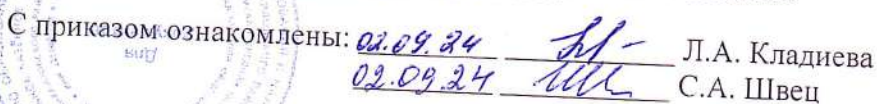 С приказом ознакомлены: 02.09.24 Л.А. Кладиева
02.09.24 С.А. Швец